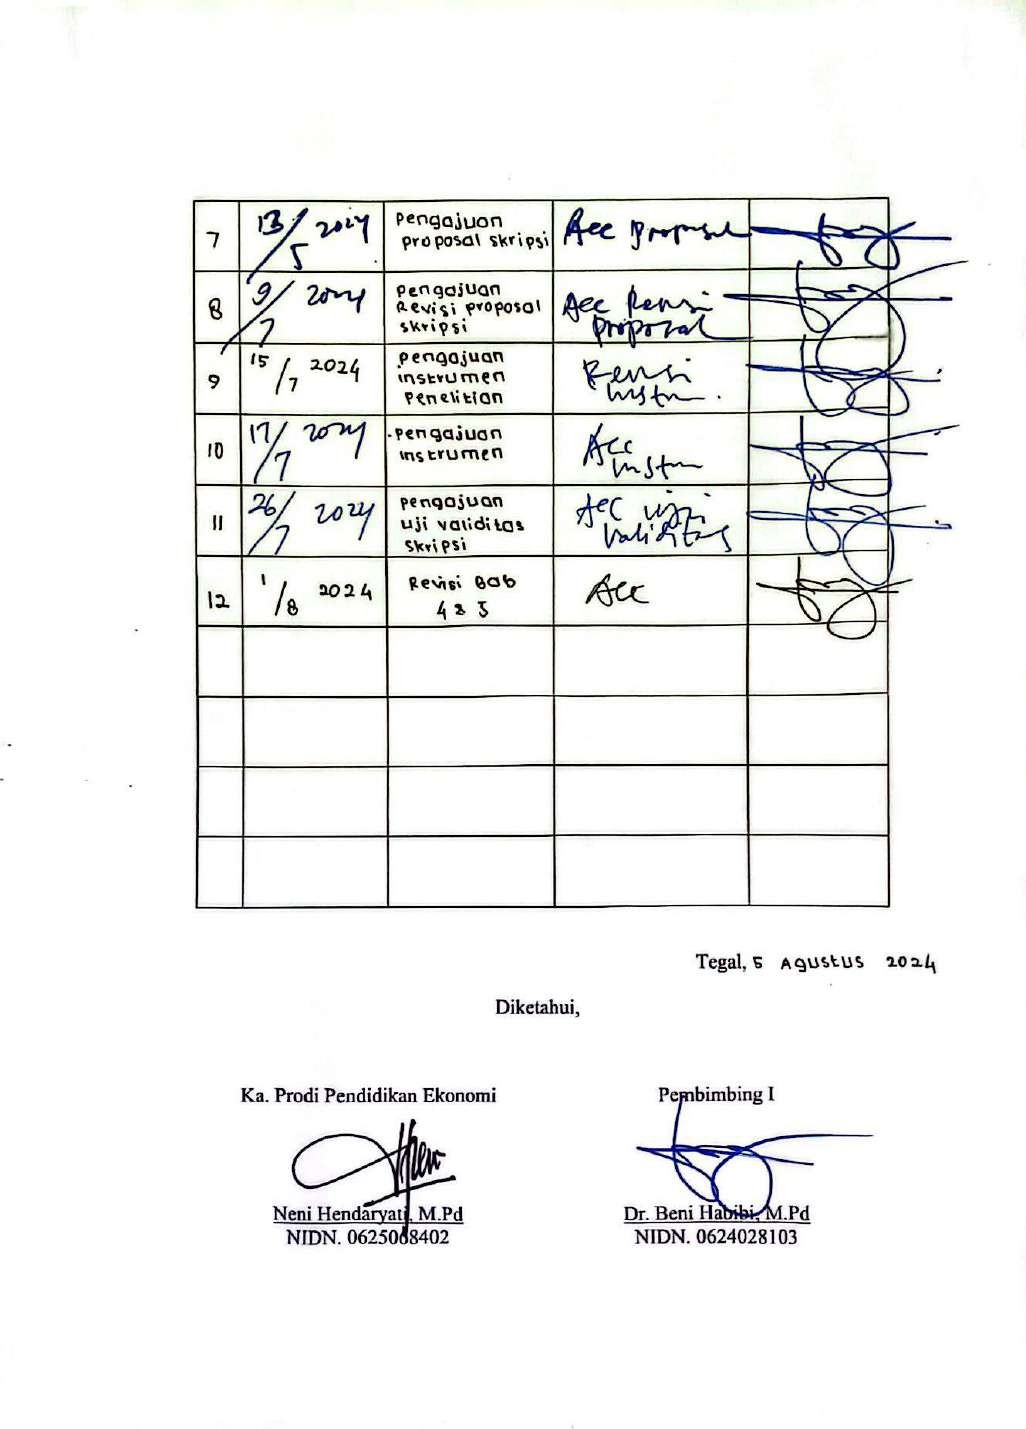 7 13/5 2024 Pengajuan proposal skripsi Acc proposal
8 9/7 2024 Pengajuan Revisi proposal skripsi Acc Revisi proposal
9 15/7 2024 Pengajuan instrumen Penelitian Revisi instrn.
10 17/7 2024 Pengajuan instrumen Acc instrn
11 26/7 2024 Pengajuan uji validitas skripsi Acc uji validitas
12 1/8 2024 Revisi Bab 4 & 5 Acc
Tegal, 5 Agustus 2024
Diketahui,
Ka. Prodi Pendidikan Ekonomi
Pembimbing I
Neni Hendaryati, M.Pd
NIDN. 0625068402
Dr. Beni Habibi, M.Pd
NIDN. 0624028103